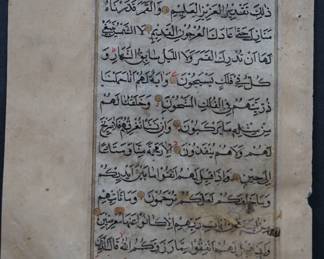 ذلك تقدير العزيز العليم والقمر قدرناه
منازل حتى عاد كالعرجون القديم لا الشمس ينبغي
لها ان تدرك القمر ولا الليل سابق النهار و
كل في فلك يسبحون واية لهم انا حملنا
ذريتهم في الفلك المشحون وخلقنا لهم
من مثله ما يركبون وان نشأ نغرقهم فلا صريخ
لهم ولا هم ينقذون الا رحمة منا ومتاعا
الى حين واذا قيل لهم اتقوا ما بين ايديكم
وما خلفكم لعلكم ترحمون وما تأتيهم
من اية من ايات ربهم الا كانوا عنها معرضين
واذا قيل لهم انفقوا مما رزقكم الله قال الذين